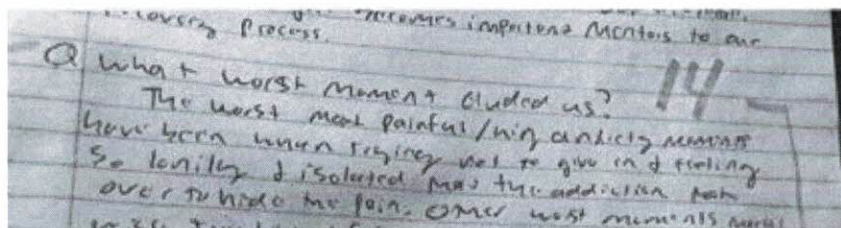 recovery process. becomes important mentors to our
Q What worst moment eluded us? 14
The worst most painful/hig anxiety moments
have been when trying not to give in & feeling
so lonily & isolated that the addiction took
over to hide the pain. Other worst moments